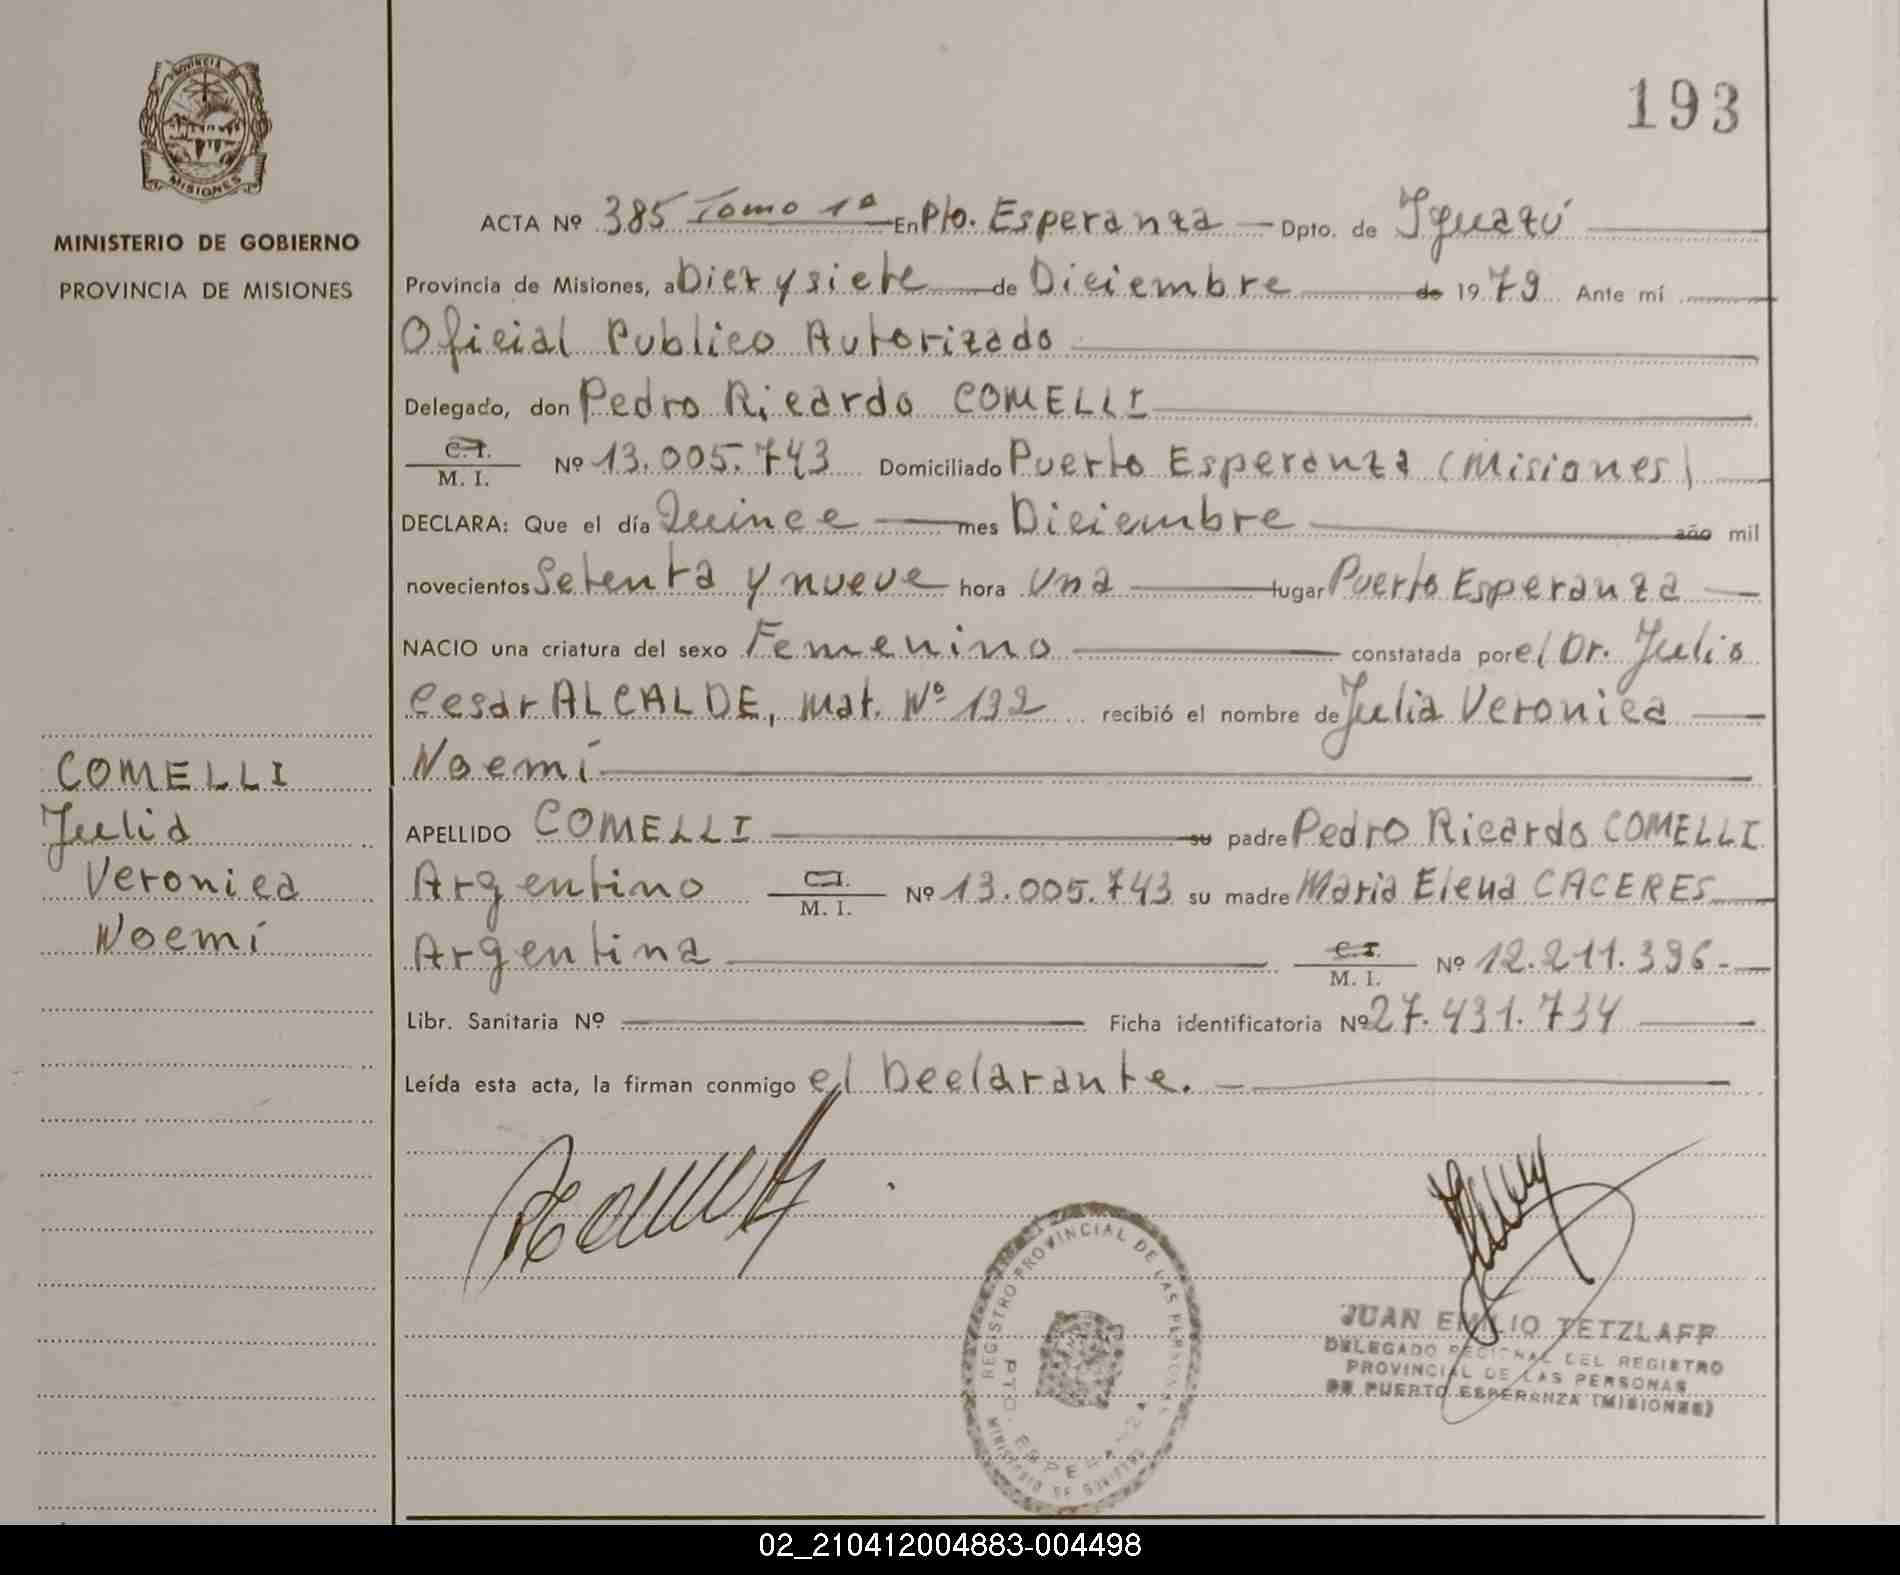 193
PROVINCIA DE
MISIONES
MINISTERIO DE GOBIERNO
PROVINCIA DE MISIONES
ACTA Nº 385 Tomo 1º En Pto. Esperanza Dpto. de Iguazú
Provincia de Misiones, a Diez y siete de Diciembre de 1979 Ante mí
Oficial Publico Autorizado
Delegado, don Pedro Ricardo COMELLI
C.I.
M. I. Nº 13.005.743 Domiciliado Puerto Esperanza (Misiones)
DECLARA: Que el día Quince mes Diciembre año mil
novecientos Setenta y nueve hora Una lugar Puerto Esperanza
NACIO una criatura del sexo Femenino constatada por el Dr. Julio
Cesar ALCALDE, Mat. Nº 132 recibió el nombre de Julia Veronica
Noemí
APELLIDO COMELLI su padre Pedro Ricardo COMELLI
Argentino C.I. M. I. Nº 13.005.743 su madre Maria Elena CACERES
Argentina C.I. M. I. Nº 12.211.396.-
Libr. Sanitaria Nº Ficha identificatoria Nº 27.431.734
Leída esta acta, la firman conmigo el Declarante.
COMELLI
Julia
Veronica
Noemí
REGISTRO PROVINCIAL DE LAS PERSONAS
PTO. ESPERANZA
MINISTERIO DE GOBIERNO
JUAN EMILIO TETZLAFF
DELEGADO REGIONAL DEL REGISTRO
PROVINCIAL DE LAS PERSONAS
DE PUERTO ESPERANZA (MISIONES)
02_210412004883-004498